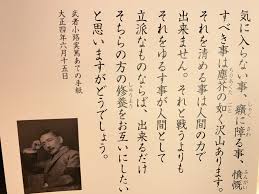 気に入らない事、癪に障る事、憤慨
すべき事は塵芥の如く沢山あります。
それを清める事は人間の力で
出来ません。それと戦うよりも
それをゆるす事が人間として
立派なものならば、出来るだけ
そちらの方の修養をお互いにしたい
と思いますがどうでしょう。
武者小路実篤あての手紙
大正四年六月十五日